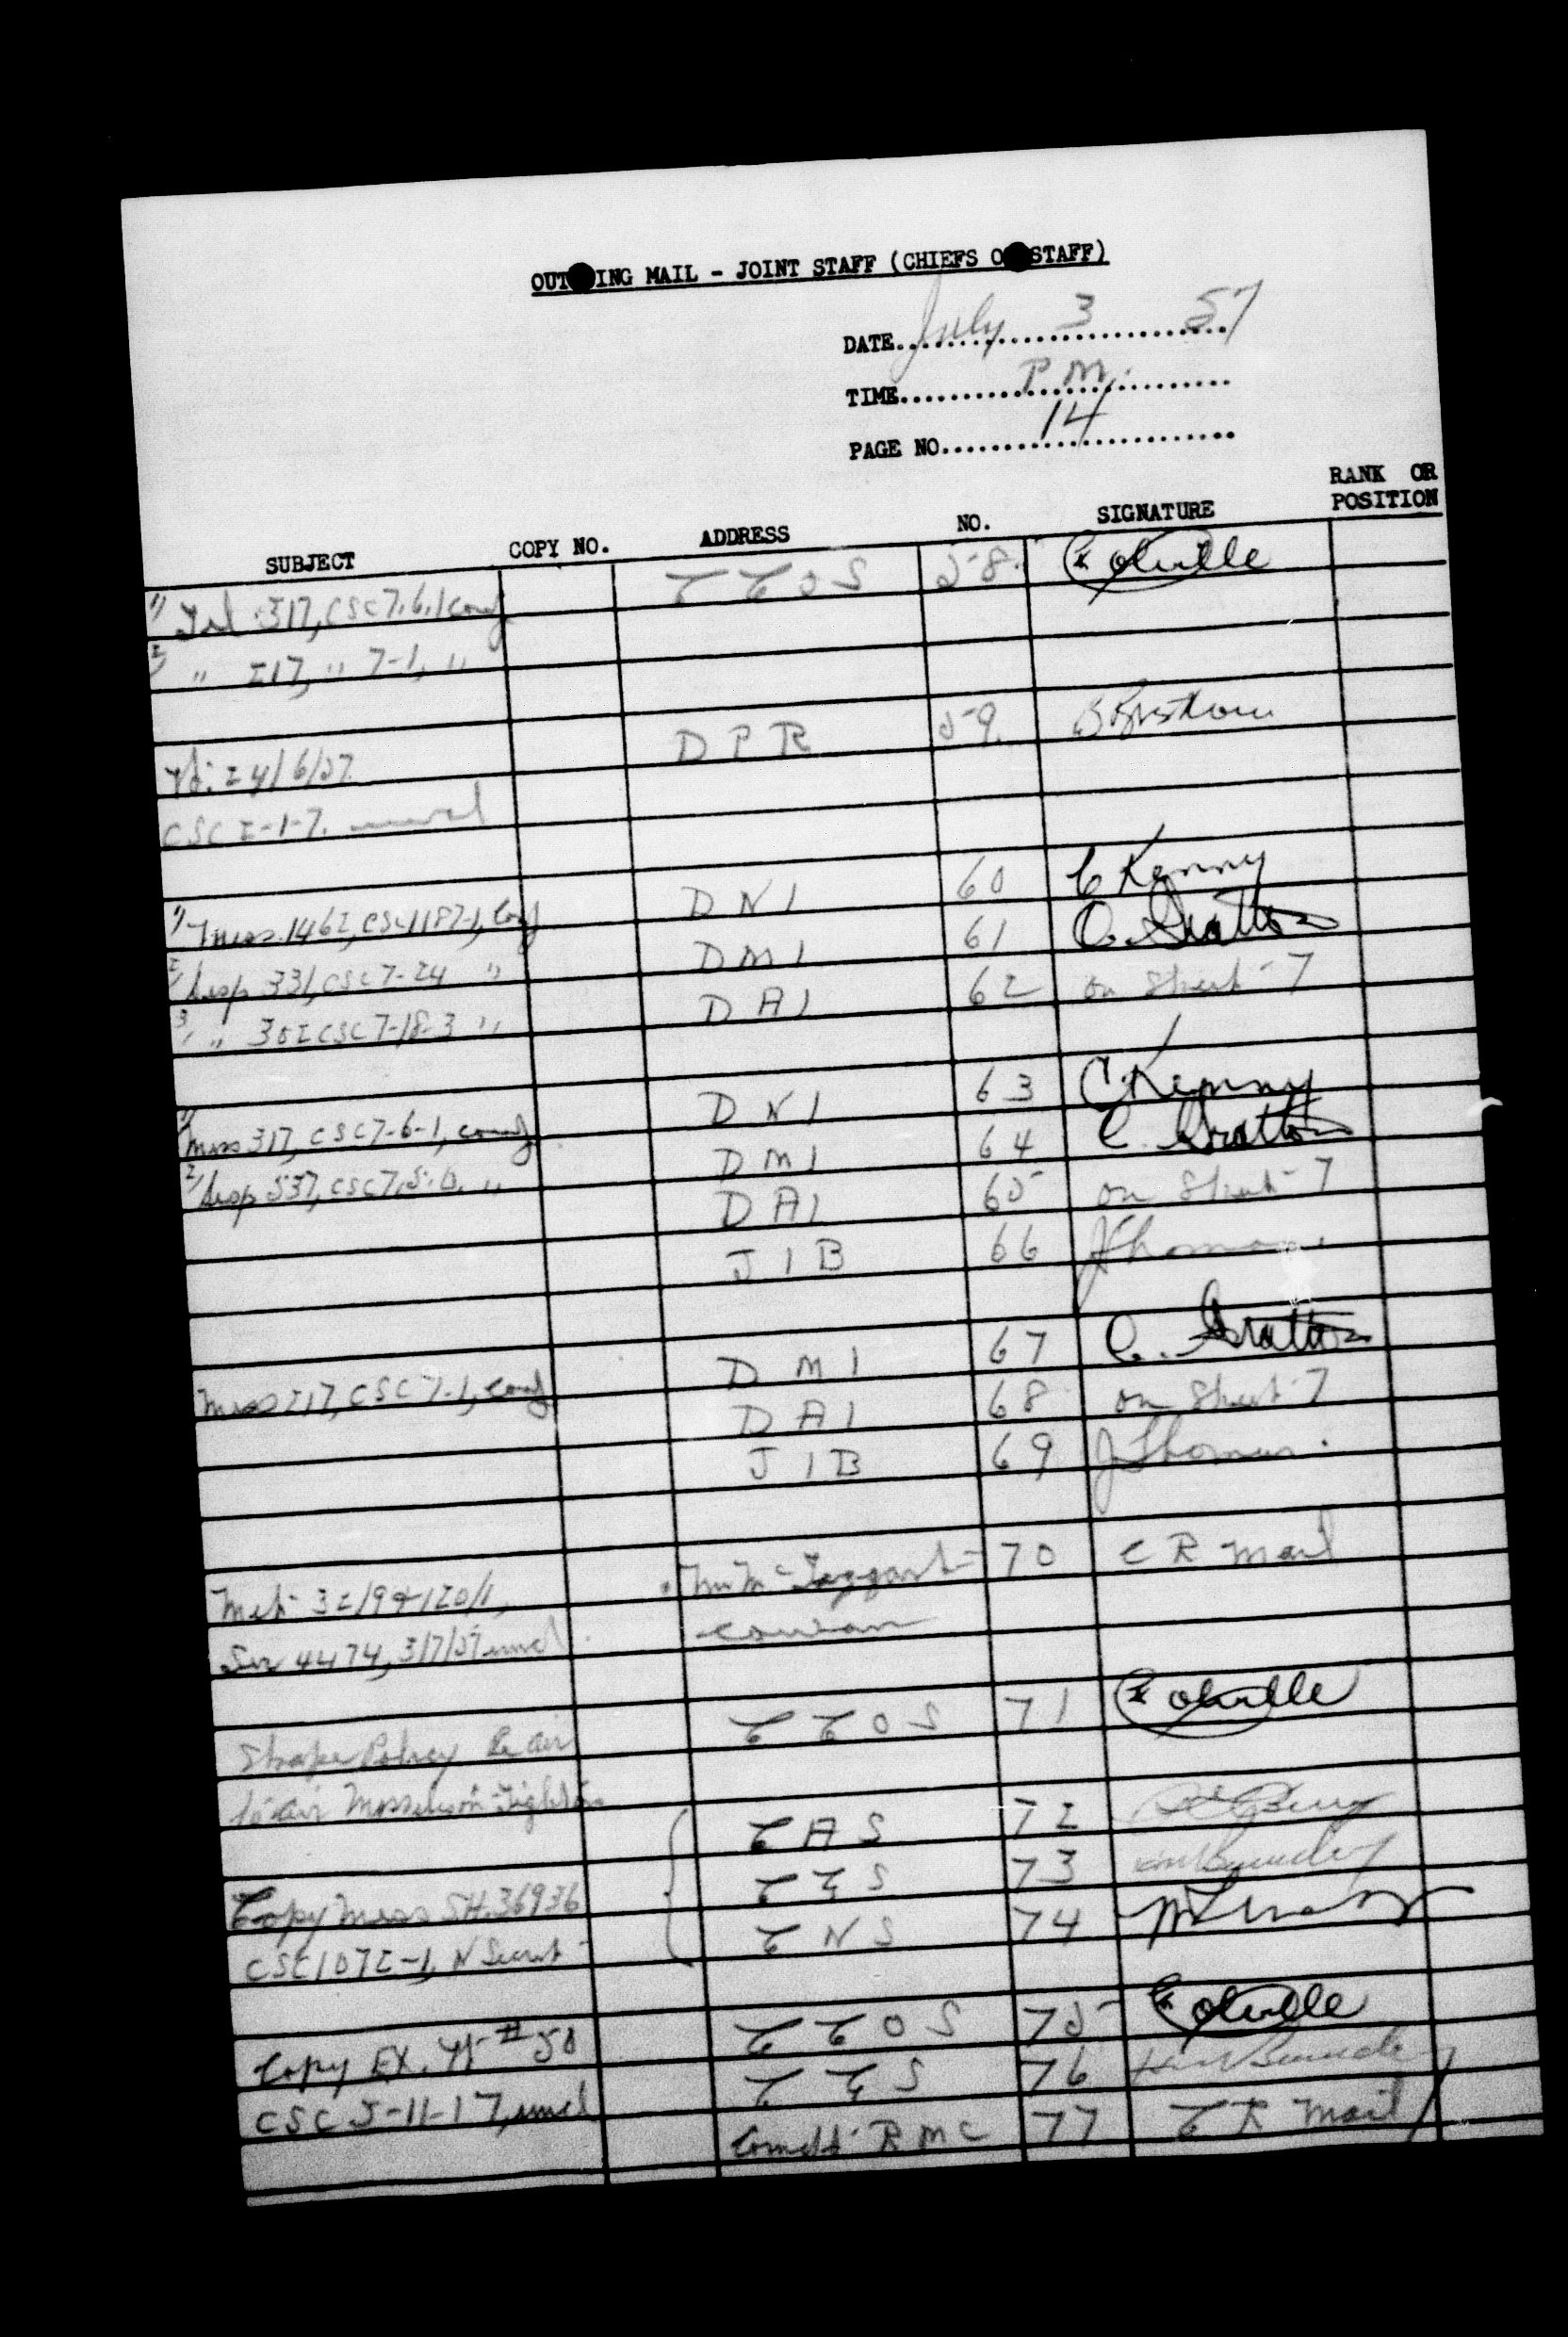 OUTGOING MAIL - JOINT STAFF (CHIEFS OF STAFF)
DATE July 3 57
TIME P.M.
PAGE NO. 14
SUBJECT COPY NO. ADDRESS NO. SIGNATURE RANK OR POSITION
1/ Tel 317, CSC 7.6.1 conf CCOS 58. Colville
2/ " 217, " 7-1, "
24/6/57 DPR 59.
CSC 2-1-7.
1/ Mess. 1462, CSC 1187-1, Conf DNI 60 C Kenny
2/ Desp 331, CSC 7-24 " DMI 61 C. Gratton
3/ " 302 CSC 7-18-3 " DAI 62 on Sheet 7
DNI 63 C. Kenny
1/ Mess 317, CSC 7-6-1, conf DMI 64 C. Gratton
2/ Desp 537, CSC 7.5. " DAI 65 on Sheet 7
JIB 66 J Thomas.
DMI 67 C. Gratton
Mess 217, CSC 7-1, conf DAI 68 on Sheet 7
JIB 69 J Thomas.
Taggart 70 CR Mail
Ser 4474, 3/7/57 uncl Cowan
CCOS 71 Colville
Shape Policy Re Air
to Air CAS 72
CGS 73
Copy Mess SH.36936 CNS 74
CSC 1072-1, N Secret
CCOS 75 Colville
Copy EX. # 50 CGS 76
CSC 5-11-17, uncl Comdt RMC 77 CR Mail